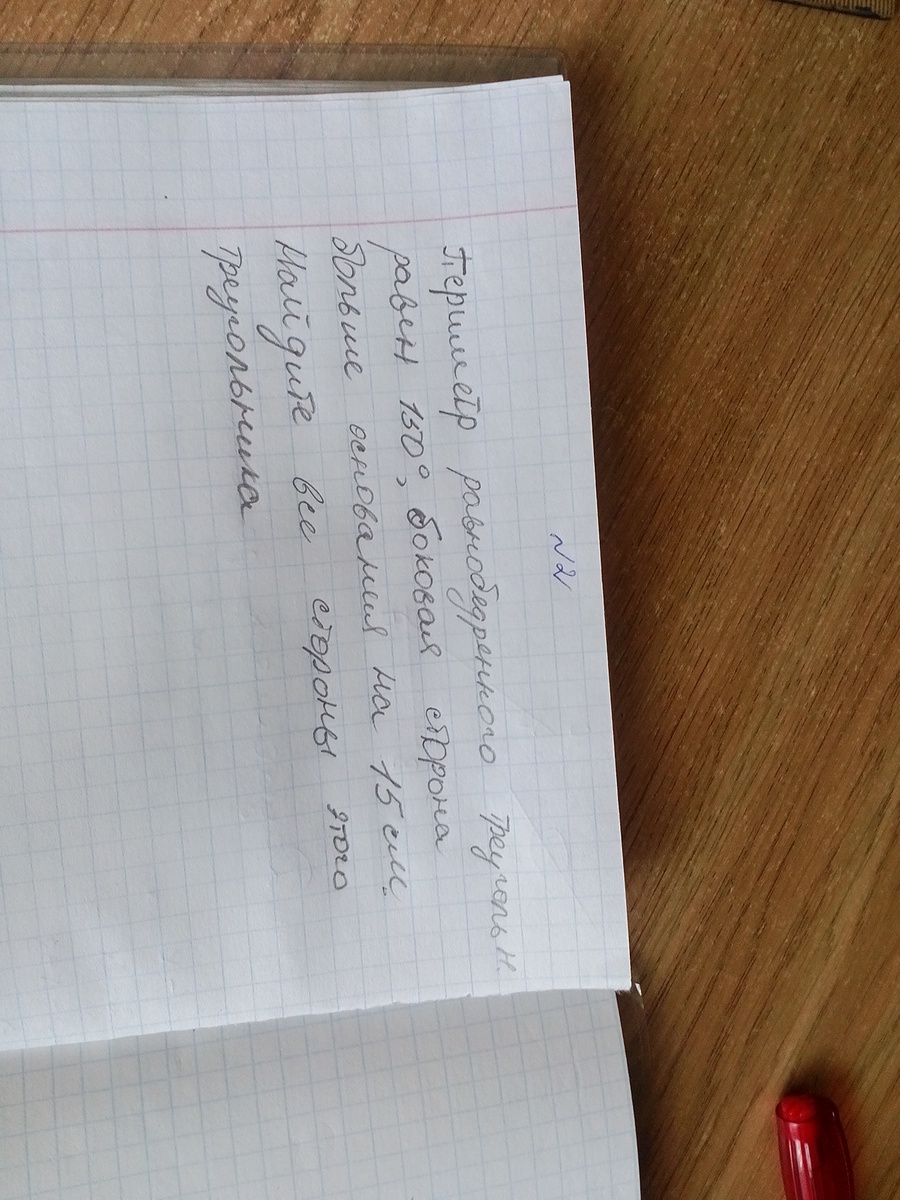 №2
Периметр равнобедренного треугольн.
равен 150°, боковая сторона
больше основания на 15 см.
Найдите все стороны этого
треугольника